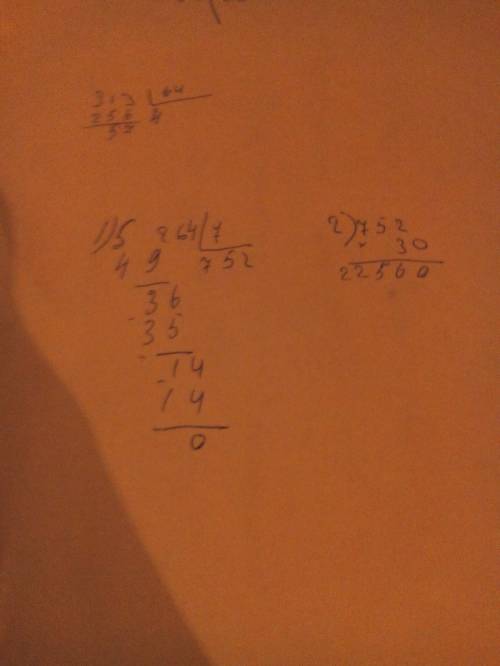 313 64
256 4
57
1) 5 264 7
4 9 752
36
- 35
- 14
- 14
0
2) 752
30
22560